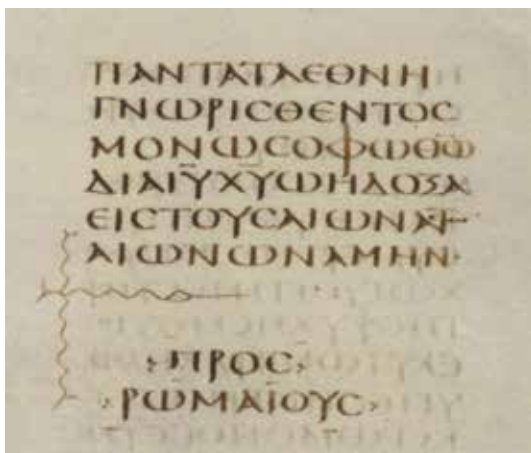 ΠΑΝΤΑΤΑΕΘΝΗ
ΓΝΩΡΙϹΘΕΝΤΟϹ
ΜΟΝΩϹΟΦΩΘ̅Ω̅
ΔΙΑΙ̅Υ̅Χ̅Υ̅ΩΗΔΟΞΑ
ΕΙϹΤΟΥϹΑΙΩΝΑ
ΑΙΩΝΩΝΑΜΗΝ·
ΠΡΟϹ
ΡΩΜΑΙΟΥϹ